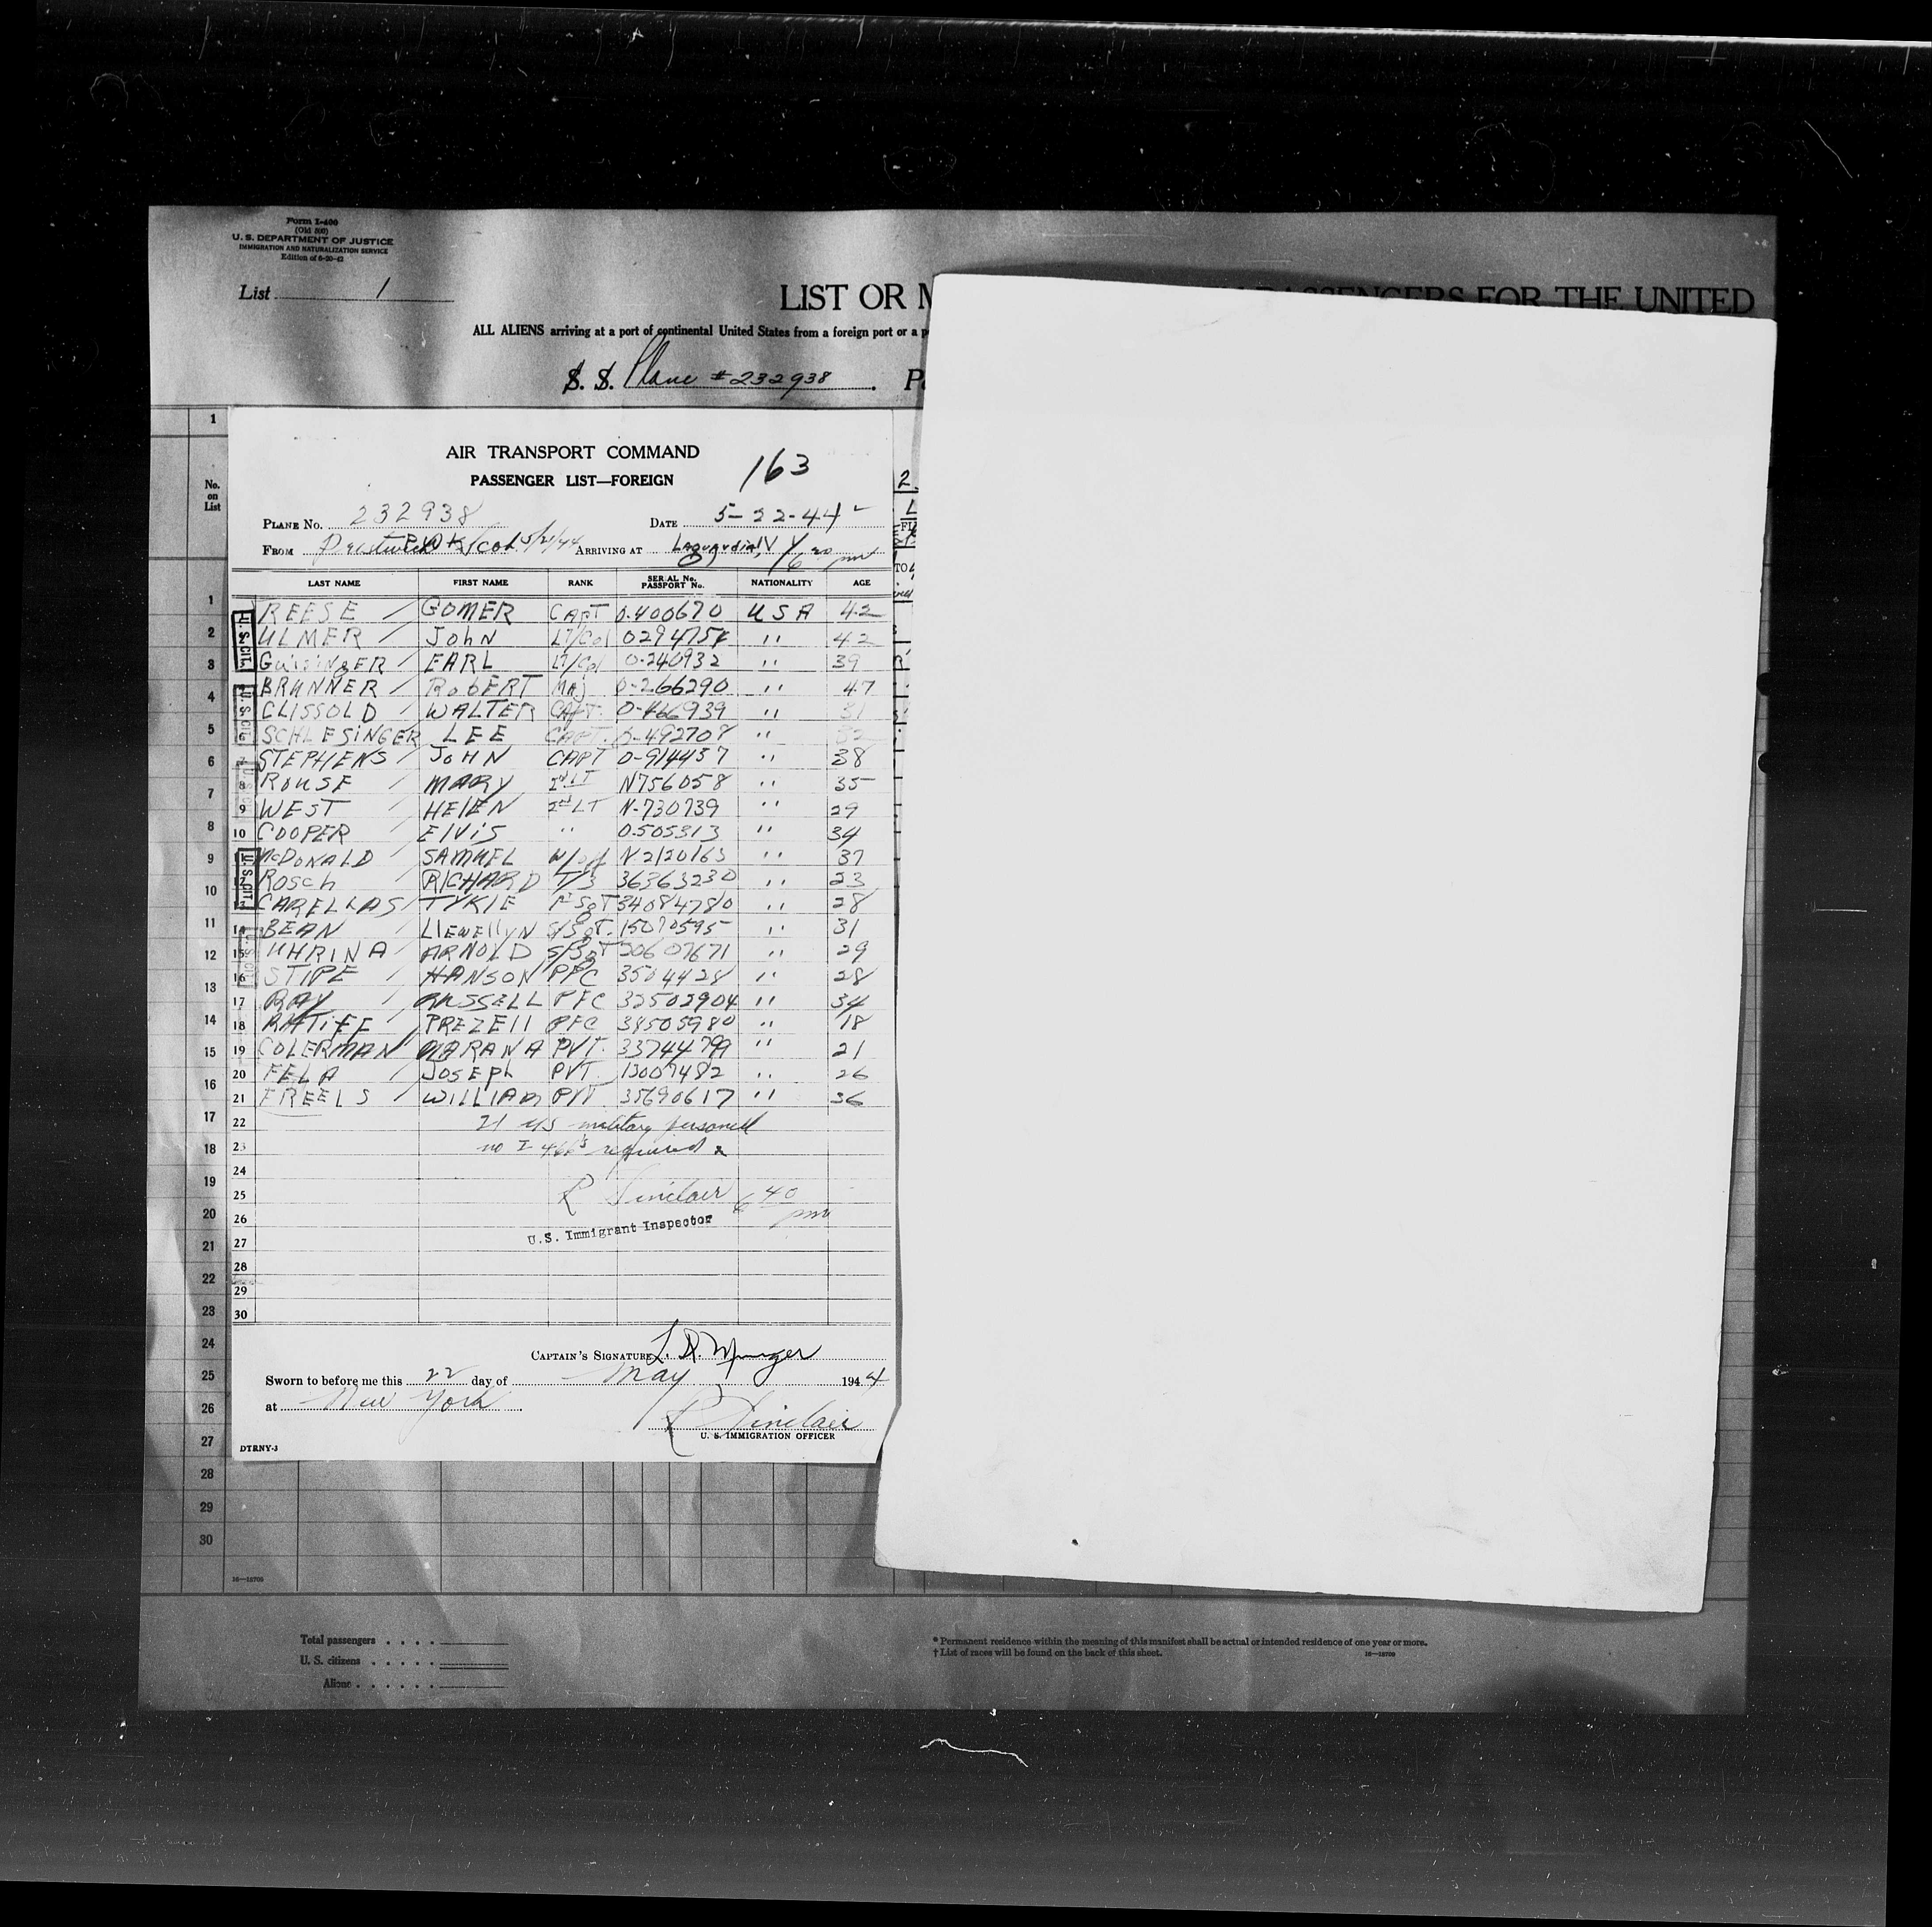 Form I-400
(Old 500)
U. S. DEPARTMENT OF JUSTICE
IMMIGRATION AND NATURALIZATION SERVICE
Edition of 6-20-42
List 1
LIST OR PASSENGERS FOR THE UNITED
ALL ALIENS arriving at a port of continental United States from a foreign port or a
S. S. Plane #232938
1
No. on List
AIR TRANSPORT COMMAND
163
PASSENGER LIST—FOREIGN
PLANE No. 232938 DATE 5-22-44
FROM Scot. 5/21/44 ARRIVING AT Laguardia, 6 30 pm
LAST NAME FIRST NAME RANK SERIAL No. PASSPORT No. NATIONALITY AGE
REESE / GOMER CAPT 0.400670 USA 42
ULMER / JohN LT/Col 42
EARL LT/Col 0.240932 " 39
BRUNNER / RobERT MAJ 0-266290 " 47
CLISSOLD / WALTER CAPT. 0-466939 " 31
SCHLESINGER LEE CAPT. " 32
STEPHENS / JOHN CAPT 0-914437 " 38
8 ROUSE / MARY N756058 " 35
9 WEST / HELEN 2nd LT N-730739 " 29
10 COOPER / ElViS " 0.505313 " 34
McDONALD / SAMUEL N-2120163 " 37
Rosch RICHARD T/3 36363230 " 23
CARELLAS / TYKIE 34084780 " 28
14 BEAN / LlEwEllyN S/SgT. 15070595 " 31
15 UHRINA / ARNOLD S/SgT 20607671 " 29
16 STIPE / HANSON PFC " 28
17 RAY / RUSSELL PFC 32502904 " 34
18 PREZEll PFC 38505980 " 18
19 COLERMAN PVT. " 21
20 FELA / JOSEPh PVT. 13007482 " 26
21 FREELS / WILLIAM PVT 35690617 " 36
22 21 US military personell
23 no I 466's required
24
25 R Sinclair 6 40 pm
26 U.S. Immigrant Inspector
27
28
29
30
CAPTAIN'S SIGNATURE L. R.
Sworn to before me this 22 day of May 1944
at New York
R Sinclair
U. S. IMMIGRATION OFFICER
DTRNY-3
U. S. CIT.
U. S. CIT.
U. S. CIT.
U. S. CIT.
U. S. CIT.
1
2
3
4
5
6
7
8
9
10
11
12
13
14
15
16
17
18
19
20
21
22
23
24
25
26
27
28
29
30
16—18709
Total passengers
U. S. citizens
Aliens
* Permanent residence within the meaning of this manifest shall be actual or intended residence of one year or more.
† List of races will be found on the back of this sheet.
16—18709